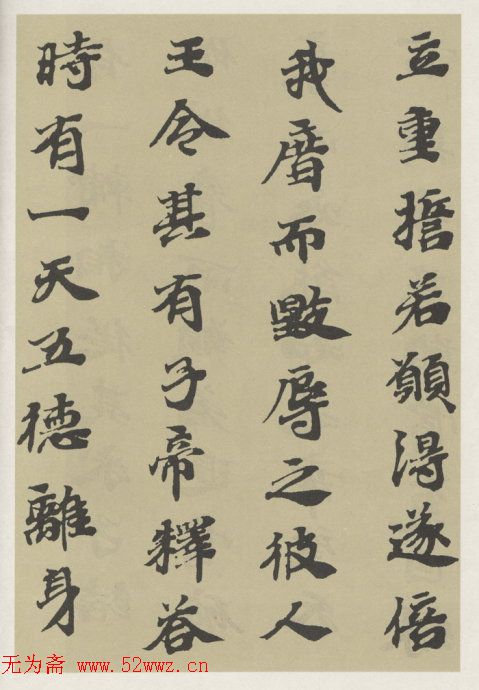 立重誓若願得遂倍
我廟而毀辱之彼人
王令其有子帝釋答
時有一天五德離身
无为斋 www.52wwz.cn